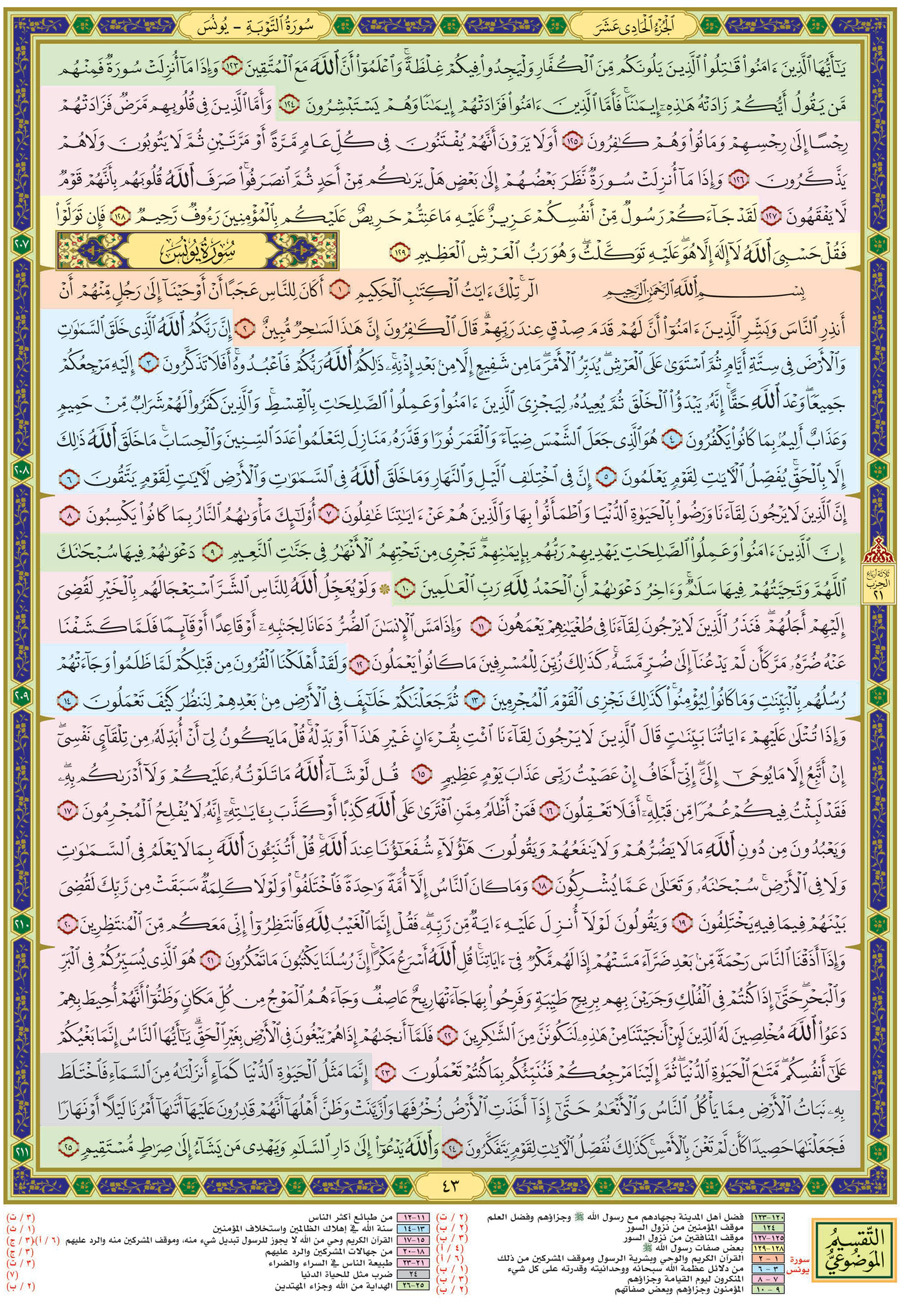 الجزء الحادي عشر
سورة التوبة - يونس
يَـٰٓأَيُّهَا ٱلَّذِينَ ءَامَنُوا۟ قَـٰتِلُوا۟ ٱلَّذِينَ يَلُونَكُم مِّنَ ٱلْكُفَّارِ وَلْيَجِدُوا۟ فِيكُمْ غِلْظَةً ۚ وَٱعْلَمُوٓا۟ أَنَّ ٱللَّهَ مَعَ ٱلْمُتَّقِينَ ١٢٣ وَإِذَا مَآ أُنزِلَتْ سُورَةٌ فَمِنْهُم
مَّن يَقُولُ أَيُّكُمْ زَادَتْهُ هَـٰذِهِۦٓ إِيمَـٰنًا ۚ فَأَمَّا ٱلَّذِينَ ءَامَنُوا۟ فَزَادَتْهُمْ إِيمَـٰنًا وَهُمْ يَسْتَبْشِرُونَ ١٢٤ وَأَمَّا ٱلَّذِينَ فِى قُلُوبِهِم مَّرَضٌ فَزَادَتْهُمْ
رِجْسًا إِلَىٰ رِجْسِهِمْ وَمَاتُوا۟ وَهُمْ كَـٰفِرُونَ ١٢٥ أَوَلَا يَرَوْنَ أَنَّهُمْ يُفْتَنُونَ فِى كُلِّ عَامٍ مَّرَّةً أَوْ مَرَّتَيْنِ ثُمَّ لَا يَتُوبُونَ وَلَا هُمْ
يَذَّكَّرُونَ ١٢٦ وَإِذَا مَآ أُنزِلَتْ سُورَةٌ نَّظَرَ بَعْضُهُمْ إِلَىٰ بَعْضٍ هَلْ يَرَىٰكُم مِّنْ أَحَدٍ ثُمَّ ٱنصَرَفُوا۟ ۚ صَرَفَ ٱللَّهُ قُلُوبَهُم بِأَنَّهُمْ قَوْمٌ
لَّا يَفْقَهُونَ ١٢٧ لَقَدْ جَآءَكُمْ رَسُولٌ مِّنْ أَنفُسِكُمْ عَزِيزٌ عَلَيْهِ مَا عَنِتُّمْ حَرِيصٌ عَلَيْكُم بِٱلْمُؤْمِنِينَ رَءُوفٌ رَّحِيمٌ ١٢٨ فَإِن تَوَلَّوْا۟
فَقُلْ حَسْبِىَ ٱللَّهُ لَآ إِلَـٰهَ إِلَّا هُوَ ۖ عَلَيْهِ تَوَكَّلْتُ ۖ وَهُوَ رَبُّ ٱلْعَرْشِ ٱلْعَظِيمِ ١٢٩ سُورَةُ يُونُسَ
٢٠٧
بِسْمِ ٱللَّهِ ٱلرَّحْمَـٰنِ ٱلرَّحِيمِ الٓر ۚ تِلْكَ ءَايَـٰتُ ٱلْكِتَـٰبِ ٱلْحَكِيمِ ١ أَكَانَ لِلنَّاسِ عَجَبًا أَنْ أَوْحَيْنَآ إِلَىٰ رَجُلٍ مِّنْهُمْ أَنْ
أَنذِرِ ٱلنَّاسَ وَبَشِّرِ ٱلَّذِينَ ءَامَنُوٓا۟ أَنَّ لَهُمْ قَدَمَ صِدْقٍ عِندَ رَبِّهِمْ ۗ قَالَ ٱلْكَـٰفِرُونَ إِنَّ هَـٰذَا لَسَـٰحِرٌ مُّبِينٌ ٢ إِنَّ رَبَّكُمُ ٱللَّهُ ٱلَّذِى خَلَقَ ٱلسَّمَـٰوَٰتِ
وَٱلْأَرْضَ فِى سِتَّةِ أَيَّامٍ ثُمَّ ٱسْتَوَىٰ عَلَى ٱلْعَرْشِ ۖ يُدَبِّرُ ٱلْأَمْرَ ۖ مَا مِن شَفِيعٍ إِلَّا مِنۢ بَعْدِ إِذْنِهِۦ ۚ ذَٰلِكُمُ ٱللَّهُ رَبُّكُمْ فَٱعْبُدُوهُ ۚ أَفَلَا تَذَكَّرُونَ ٣ إِلَيْهِ مَرْجِعُكُمْ
جَمِيعًا ۖ وَعْدَ ٱللَّهِ حَقًّا ۚ إِنَّهُۥ يَبْدَؤُا۟ ٱلْخَلْقَ ثُمَّ يُعِيدُهُۥ لِيَجْزِىَ ٱلَّذِينَ ءَامَنُوا۟ وَعَمِلُوا۟ ٱلصَّـٰلِحَـٰتِ بِٱلْقِسْطِ ۚ وَٱلَّذِينَ كَفَرُوا۟ لَهُمْ شَرَابٌ مِّنْ حَمِيمٍ
وَعَذَابٌ أَلِيمٌۢ بِمَا كَانُوا۟ يَكْفُرُونَ ٤ هُوَ ٱلَّذِى جَعَلَ ٱلشَّمْسَ ضِيَآءً وَٱلْقَمَرَ نُورًا وَقَدَّرَهُۥ مَنَازِلَ لِتَعْلَمُوا۟ عَدَدَ ٱلسِّنِينَ وَٱلْحِسَابَ ۚ مَا خَلَقَ ٱللَّهُ ذَٰلِكَ
٢٠٨
إِلَّا بِٱلْحَقِّ ۚ يُفَصِّلُ ٱلْـَٔايَـٰتِ لِقَوْمٍ يَعْلَمُونَ ٥ إِنَّ فِى ٱخْتِلَـٰفِ ٱلَّيْلِ وَٱلنَّهَارِ وَمَا خَلَقَ ٱللَّهُ فِى ٱلسَّمَـٰوَٰتِ وَٱلْأَرْضِ لَـَٔايَـٰتٍ لِّقَوْمٍ يَتَّقُونَ ٦
إِنَّ ٱلَّذِينَ لَا يَرْجُونَ لِقَآءَنَا وَرَضُوا۟ بِٱلْحَيَوٰةِ ٱلدُّنْيَا وَٱطْمَأَنُّوا۟ بِهَا وَٱلَّذِينَ هُمْ عَنْ ءَايَـٰتِنَا غَـٰفِلُونَ ٧ أُو۟لَـٰٓئِكَ مَأْوَىٰهُمُ ٱلنَّارُ بِمَا كَانُوا۟ يَكْسِبُونَ ٨
إِنَّ ٱلَّذِينَ ءَامَنُوا۟ وَعَمِلُوا۟ ٱلصَّـٰلِحَـٰتِ يَهْدِيهِمْ رَبُّهُم بِإِيمَـٰنِهِمْ ۖ تَجْرِى مِن تَحْتِهِمُ ٱلْأَنْهَـٰرُ فِى جَنَّـٰتِ ٱلنَّعِيمِ ٩ دَعْوَىٰهُمْ فِيهَا سُبْحَـٰنَكَ
ٱللَّهُمَّ وَتَحِيَّتُهُمْ فِيهَا سَلَـٰمٌ ۚ وَءَاخِرُ دَعْوَىٰهُمْ أَنِ ٱلْحَمْدُ لِلَّهِ رَبِّ ٱلْعَـٰلَمِينَ ١٠ ۞ وَلَوْ يُعَجِّلُ ٱللَّهُ لِلنَّاسِ ٱلشَّرَّ ٱسْتِعْجَالَهُم بِٱلْخَيْرِ لَقُضِىَ
ثلاثة أرباع
الحزب
٢١
إِلَيْهِمْ أَجَلُهُمْ ۖ فَنَذَرُ ٱلَّذِينَ لَا يَرْجُونَ لِقَآءَنَا فِى طُغْيَـٰنِهِمْ يَعْمَهُونَ ١١ وَإِذَا مَسَّ ٱلْإِنسَـٰنَ ٱلضُّرُّ دَعَانَا لِجَنۢبِهِۦٓ أَوْ قَاعِدًا أَوْ قَآئِمًا فَلَمَّا كَشَفْنَا
عَنْهُ ضُرَّهُۥ مَرَّ كَأَن لَّمْ يَدْعُنَآ إِلَىٰ ضُرٍّ مَّسَّهُۥ ۚ كَذَٰلِكَ زُيِّنَ لِلْمُسْرِفِينَ مَا كَانُوا۟ يَعْمَلُونَ ١٢ وَلَقَدْ أَهْلَكْنَا ٱلْقُرُونَ مِن قَبْلِكُمْ لَمَّا ظَلَمُوا۟ ۙ وَجَآءَتْهُمْ
رُسُلُهُم بِٱلْبَيِّنَـٰتِ وَمَا كَانُوا۟ لِيُؤْمِنُوا۟ ۚ كَذَٰلِكَ نَجْزِى ٱلْقَوْمَ ٱلْمُجْرِمِينَ ١٣ ثُمَّ جَعَلْنَـٰكُمْ خَلَـٰٓئِفَ فِى ٱلْأَرْضِ مِنۢ بَعْدِهِمْ لِنَنظُرَ كَيْفَ تَعْمَلُونَ ١٤
٢٠٩
وَإِذَا تُتْلَىٰ عَلَيْهِمْ ءَايَاتُنَا بَيِّنَـٰتٍ ۙ قَالَ ٱلَّذِينَ لَا يَرْجُونَ لِقَآءَنَا ٱئْتِ بِقُرْءَانٍ غَيْرِ هَـٰذَآ أَوْ بَدِّلْهُ ۚ قُلْ مَا يَكُونُ لِىٓ أَنْ أُبَدِّلَهُۥ مِن تِلْقَآئِ نَفْسِىٓ ۖ
إِنْ أَتَّبِعُ إِلَّا مَا يُوحَىٰٓ إِلَىَّ ۖ إِنِّىٓ أَخَافُ إِنْ عَصَيْتُ رَبِّى عَذَابَ يَوْمٍ عَظِيمٍ ١٥ قُل لَّوْ شَآءَ ٱللَّهُ مَا تَلَوْتُهُۥ عَلَيْكُمْ وَلَآ أَدْرَىٰكُم بِهِۦ ۖ
فَقَدْ لَبِثْتُ فِيكُمْ عُمُرًا مِّن قَبْلِهِۦٓ ۚ أَفَلَا تَعْقِلُونَ ١٦ فَمَنْ أَظْلَمُ مِمَّنِ ٱفْتَرَىٰ عَلَى ٱللَّهِ كَذِبًا أَوْ كَذَّبَ بِـَٔايَـٰتِهِۦٓ ۚ إِنَّهُۥ لَا يُفْلِحُ ٱلْمُجْرِمُونَ ١٧
وَيَعْبُدُونَ مِن دُونِ ٱللَّهِ مَا لَا يَضُرُّهُمْ وَلَا يَنفَعُهُمْ وَيَقُولُونَ هَـٰٓؤُلَآءِ شُفَعَـٰٓؤُنَا عِندَ ٱللَّهِ ۚ قُلْ أَتُنَبِّـُٔونَ ٱللَّهَ بِمَا لَا يَعْلَمُ فِى ٱلسَّمَـٰوَٰتِ
وَلَا فِى ٱلْأَرْضِ ۚ سُبْحَـٰنَهُۥ وَتَعَـٰلَىٰ عَمَّا يُشْرِكُونَ ١٨ وَمَا كَانَ ٱلنَّاسُ إِلَّآ أُمَّةً وَٰحِدَةً فَٱخْتَلَفُوا۟ ۚ وَلَوْلَا كَلِمَةٌ سَبَقَتْ مِن رَّبِّكَ لَقُضِىَ
بَيْنَهُمْ فِيمَا فِيهِ يَخْتَلِفُونَ ١٩ وَيَقُولُونَ لَوْلَآ أُنزِلَ عَلَيْهِ ءَايَةٌ مِّن رَّبِّهِۦ ۖ فَقُلْ إِنَّمَا ٱلْغَيْبُ لِلَّهِ فَٱنتَظِرُوٓا۟ إِنِّى مَعَكُم مِّنَ ٱلْمُنتَظِرِينَ ٢٠
٢١٠
وَإِذَآ أَذَقْنَا ٱلنَّاسَ رَحْمَةً مِّنۢ بَعْدِ ضَرَّآءَ مَسَّتْهُمْ إِذَا لَهُم مَّكْرٌ فِىٓ ءَايَاتِنَا ۚ قُلِ ٱللَّهُ أَسْرَعُ مَكْرًا ۚ إِنَّ رُسُلَنَا يَكْتُبُونَ مَا تَمْكُرُونَ ٢١ هُوَ ٱلَّذِى يُسَيِّرُكُمْ فِى ٱلْبَرِّ
وَٱلْبَحْرِ ۖ حَتَّىٰٓ إِذَا كُنتُمْ فِى ٱلْفُلْكِ وَجَرَيْنَ بِهِم بِرِيحٍ طَيِّبَةٍ وَفَرِحُوا۟ بِهَا جَآءَتْهَا رِيحٌ عَاصِفٌ وَجَآءَهُمُ ٱلْمَوْجُ مِن كُلِّ مَكَانٍ وَظَنُّوٓا۟ أَنَّهُمْ أُحِيطَ بِهِمْ ۙ
دَعَوُا۟ ٱللَّهَ مُخْلِصِينَ لَهُ ٱلدِّينَ لَئِنْ أَنجَيْتَنَا مِنْ هَـٰذِهِۦ لَنَكُونَنَّ مِنَ ٱلشَّـٰكِرِينَ ٢٢ فَلَمَّآ أَنجَىٰهُمْ إِذَا هُمْ يَبْغُونَ فِى ٱلْأَرْضِ بِغَيْرِ ٱلْحَقِّ ۗ يَـٰٓأَيُّهَا ٱلنَّاسُ إِنَّمَا بَغْيُكُمْ
عَلَىٰٓ أَنفُسِكُم ۖ مَّتَـٰعَ ٱلْحَيَوٰةِ ٱلدُّنْيَا ۖ ثُمَّ إِلَيْنَا مَرْجِعُكُمْ فَنُنَبِّئُكُم بِمَا كُنتُمْ تَعْمَلُونَ ٢٣ إِنَّمَا مَثَلُ ٱلْحَيَوٰةِ ٱلدُّنْيَا كَمَآءٍ أَنزَلْنَـٰهُ مِنَ ٱلسَّمَآءِ فَٱخْتَلَطَ
بِهِۦ نَبَاتُ ٱلْأَرْضِ مِمَّا يَأْكُلُ ٱلنَّاسُ وَٱلْأَنْعَـٰمُ حَتَّىٰٓ إِذَآ أَخَذَتِ ٱلْأَرْضُ زُخْرُفَهَا وَٱزَّيَّنَتْ وَظَنَّ أَهْلُهَآ أَنَّهُمْ قَـٰدِرُونَ عَلَيْهَآ أَتَىٰهَآ أَمْرُنَا لَيْلًا أَوْ نَهَارًا
فَجَعَلْنَـٰهَا حَصِيدًا كَأَن لَّمْ تَغْنَ بِٱلْأَمْسِ ۚ كَذَٰلِكَ نُفَصِّلُ ٱلْـَٔايَـٰتِ لِقَوْمٍ يَتَفَكَّرُونَ ٢٤ وَٱللَّهُ يَدْعُوٓا۟ إِلَىٰ دَارِ ٱلسَّلَـٰمِ وَيَهْدِى مَن يَشَآءُ إِلَىٰ صِرَٰطٍ مُّسْتَقِيمٍ ٢٥
٢١١
٤٣
التقسيم
الموضوعي
١٢٠-١٢٣ فضل أهل المدينة بجهادهم مع رسول الله ﷺ وجزاؤهم وفضل العلم (٢ / ت)
١٢٤ موقف المؤمنين من نزول السور (٢ / ب)
١٢٥-١٢٧ موقف المنافقين من نزول السور (٣ / ب)
١٢٨-١٢٩ بعض صفات رسول الله ﷺ (٤ / أ)
سورة يونس
١ - ٢ القرآن الكريم والوحي وبشرية الرسول وموقف المشركين من ذلك (٦ / أ)
٣ - ٦ من دلائل عظمة الله سبحانه ووحدانيته وقدرته على كل شيء (١ / ب)
٧ - ٨ المنكرون ليوم القيامة وجزاؤهم (٣ / ب)
٩ - ١٠ المؤمنون وجزاؤهم وبعض صفاتهم (٢ / ب)
١١-١٢ من طبائع أكثر الناس (٣ / ت)
١٣-١٤ سنة الله في إهلاك الظالمين واستخلاف المؤمنين (١ / ت)
١٥-١٧ القرآن الكريم وحي من الله لا يجوز للرسول تبديل شيء منه، وموقف المشركين منه والرد عليهم (٦ / أ) (٣ / ج)
١٨-٢٠ من جهالات المشركين والرد عليهم (٣ / ج)
٢١-٢٣ طبيعة الناس في السراء والضراء (٣ / ت)
٢٤ ضرب مثل للحياة الدنيا (٧)
٢٥-٢٦ الهداية من الله وجزاء المهتدين (٢ / ب)